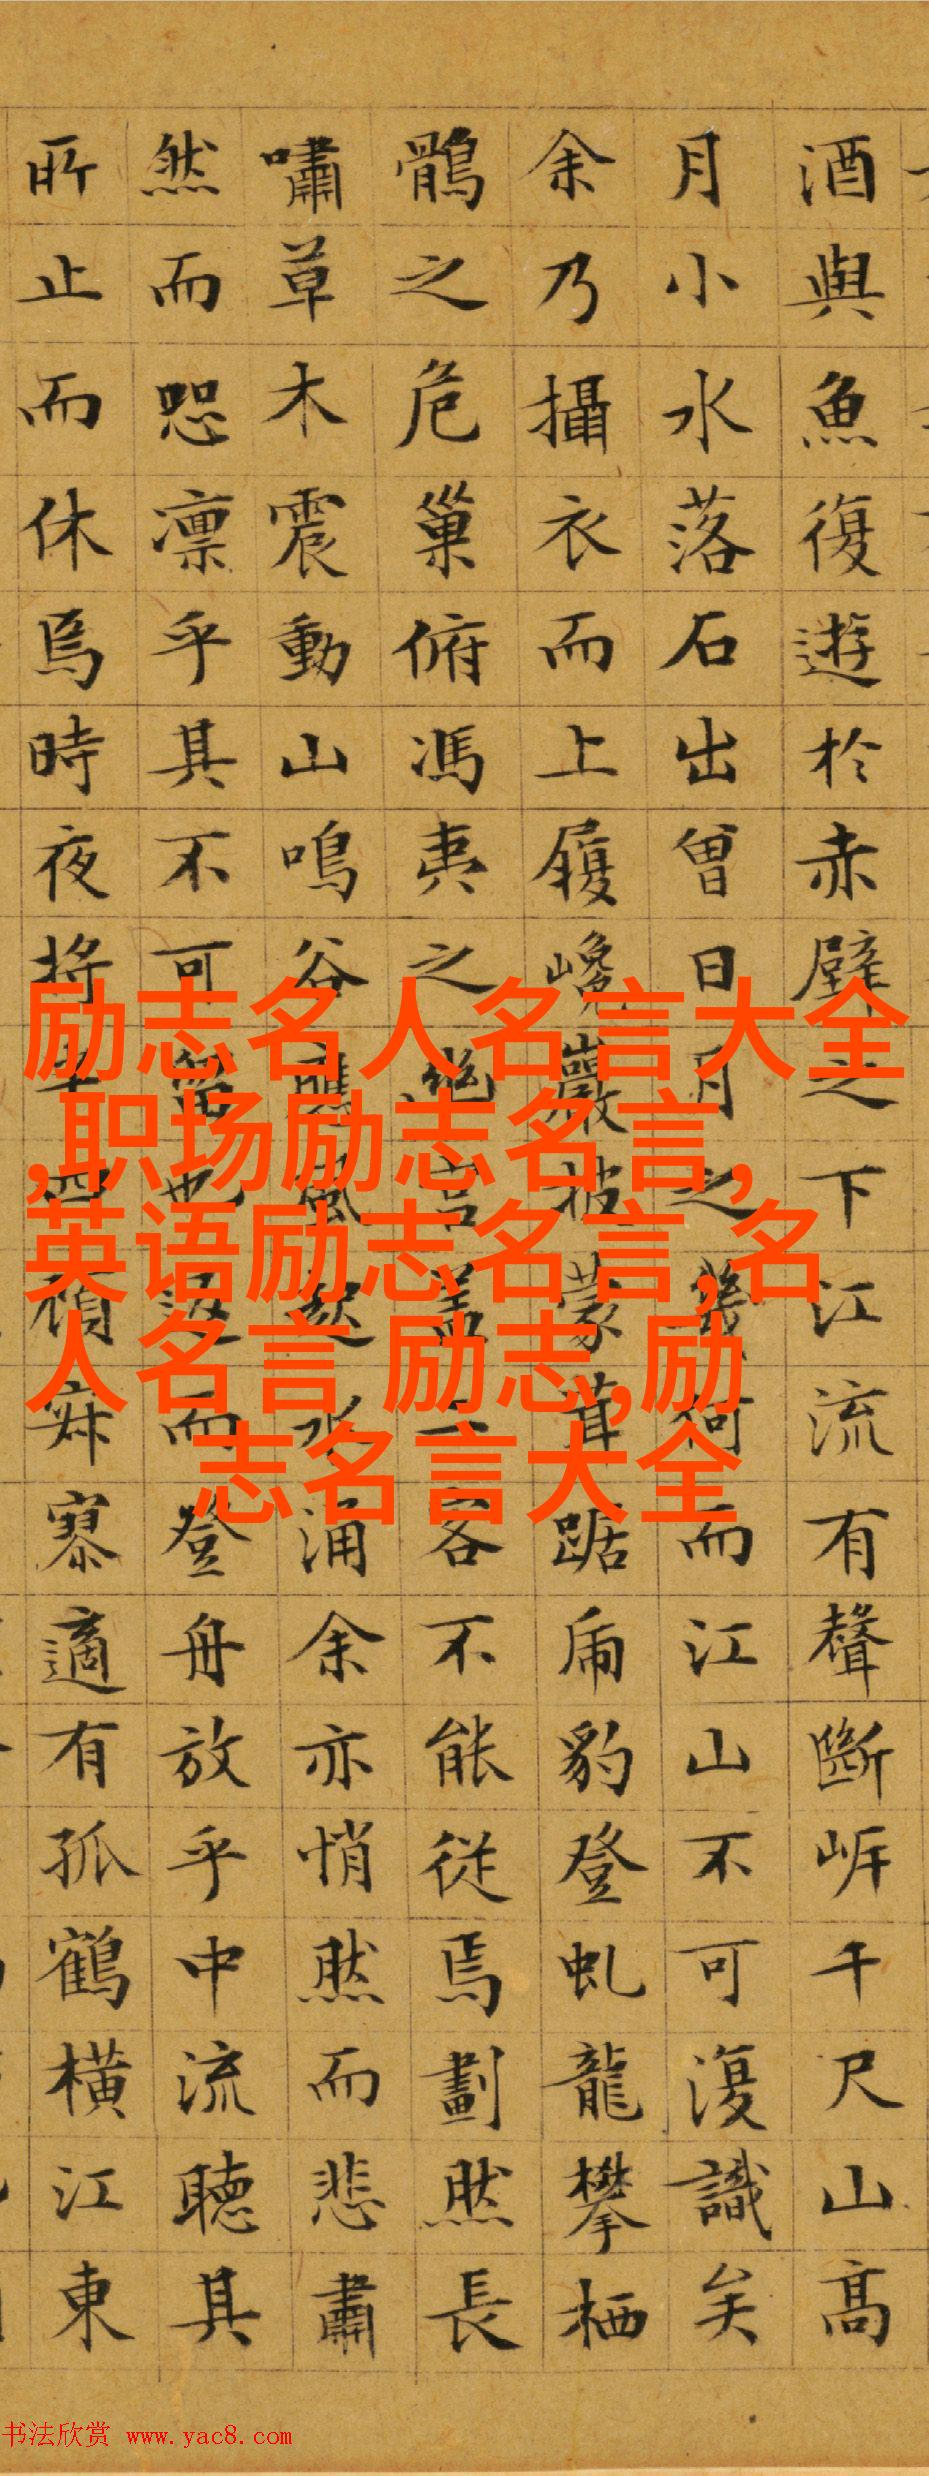 酒與魚復遊於赤壁之下江流有聲斷岸千尺山高
月小水落石出曾日月之幾何而江山不可復識矣
余乃攝衣而上履巉巖披蒙茸踞虎豹登虬龍攀栖
鶻之危巢俯馮夷之幽宮蓋二客不能從焉劃然長
嘯草木震動山鳴谷應風起水涌余亦悄然而悲肅
然而恐凛乎其不可留也返而登舟放乎中流聽其
所止而休焉時夜將半四顧寂寥適有孤鶴橫江東
励志名人名言大全
,职场励志名言,
英语励志名言,名
人名言 励志,励
志名言大全
书法欣赏 www.yac8.com